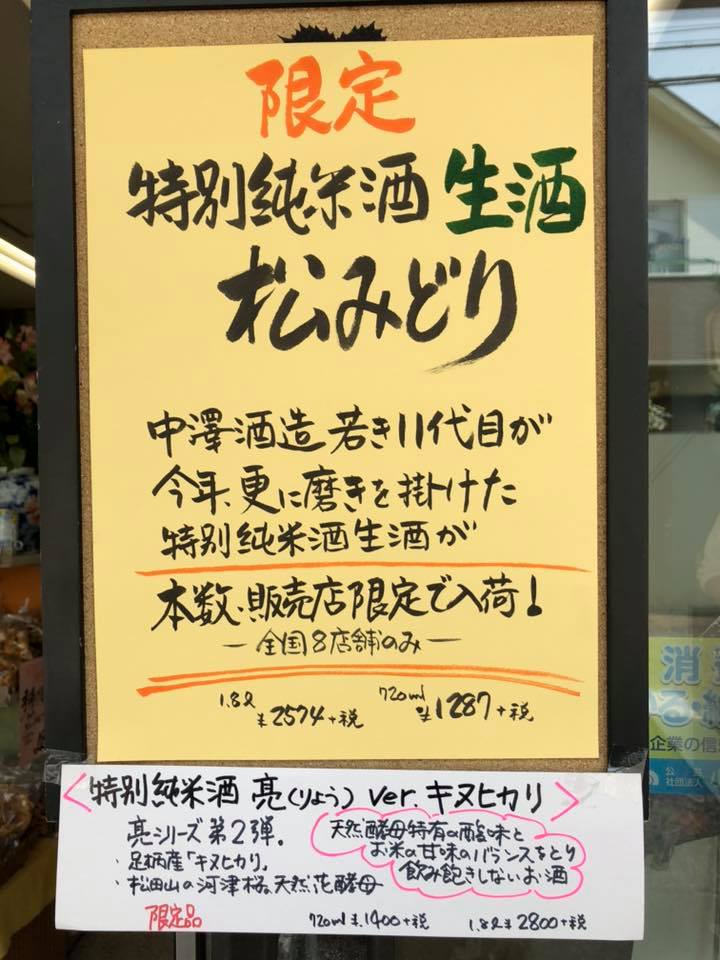 限定
特別純米酒 生酒
松みどり
中澤酒造 若き11代目が
今年、更に磨きを掛けた
特別純米酒生酒が
本数・販売店限定で入荷!
ー全国8店舗のみー
1.8ℓ ¥2574+税 720ml ¥1287+税
<特別純米酒 亮(りょう) ver. キヌヒカリ>
亮シリーズ第2弾。
・足柄産「キヌヒカリ」
・松田山の河津桜、天然花酵母
天然酵母特有の酸味と
お米の甘味のバランスをとり
飲み飽きしないお酒
限定品 720ml ¥1400+税 1.8ℓ ¥2800+税
消
企業の信
公益
社団法人